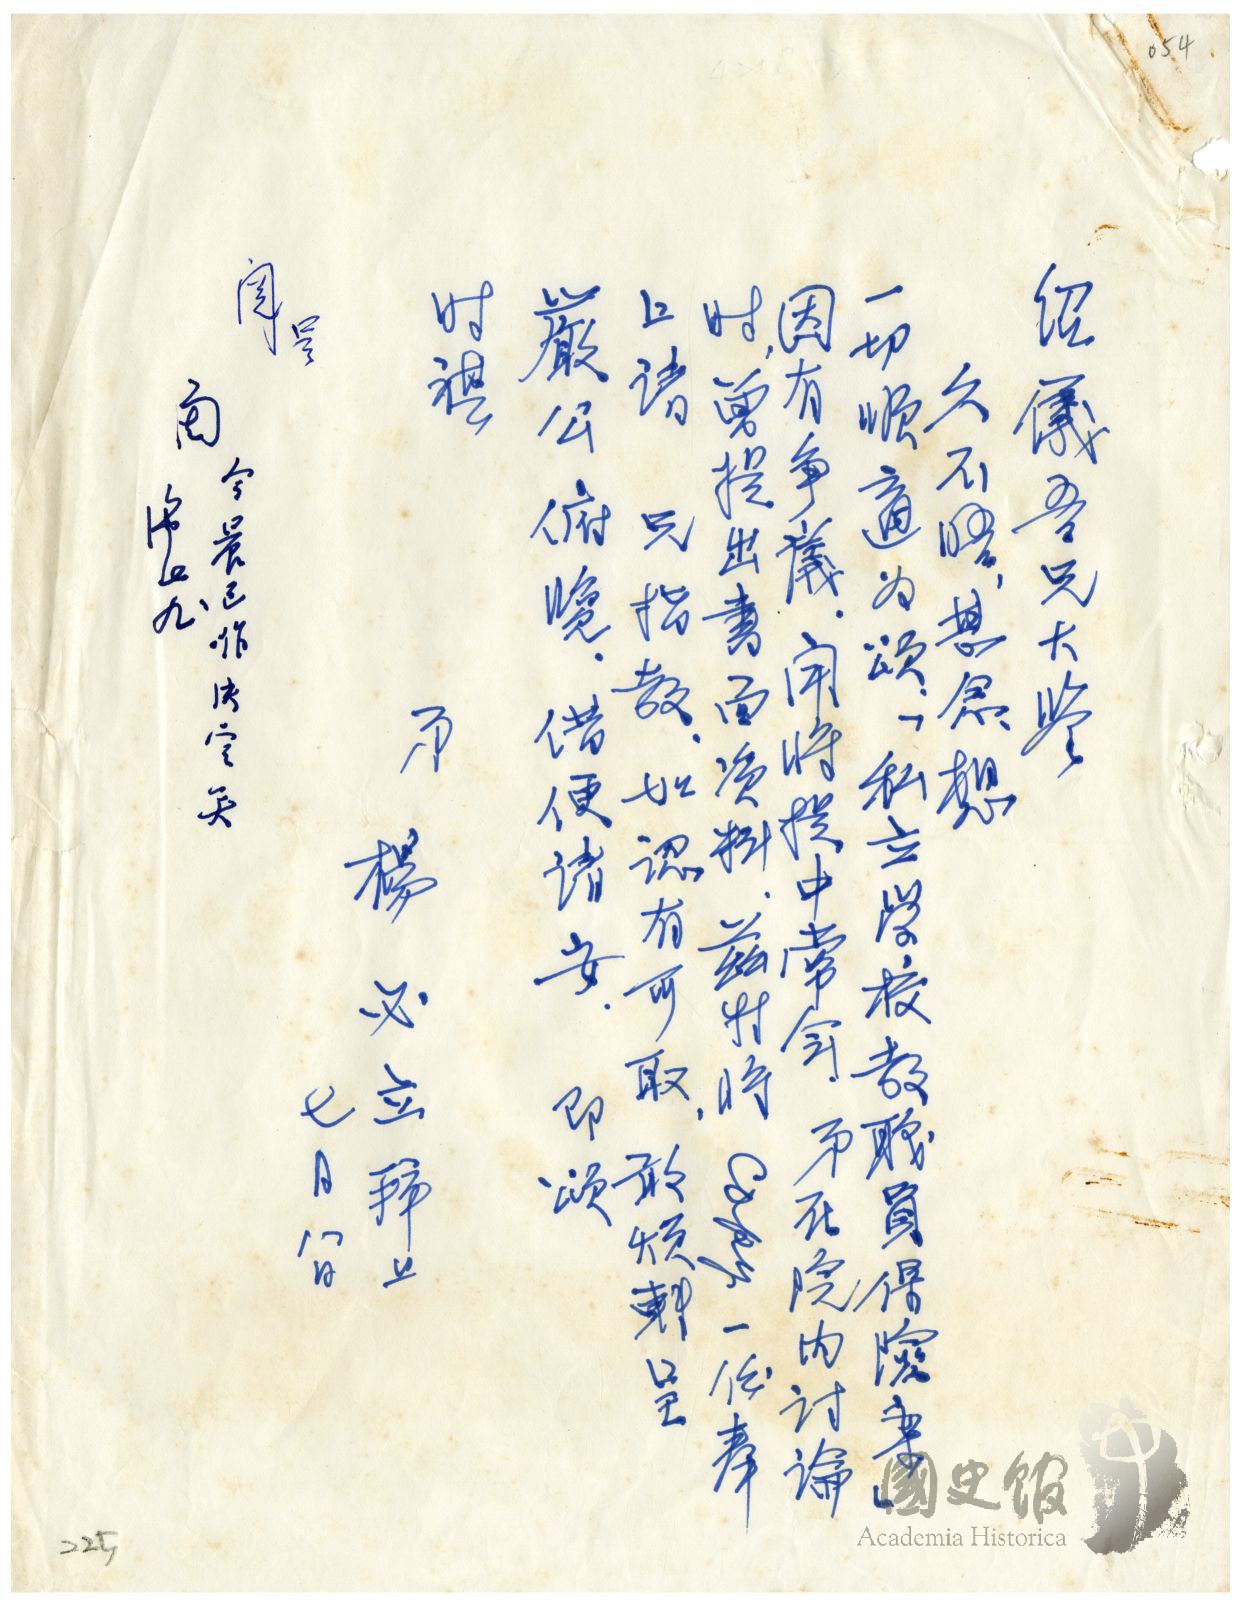 054
紹儀吾兄大鑒
久不晤,甚念,想
一切順適為頌,「私立學校教職員保險案」
因有爭議.聞將提中常会.弟在院内討論
时,曾提出書面資料.茲特將 一份奉
上請 兄指教.如認有可取,敢煩轉呈
嚴公俯覽.借便請安. 即頌
时祺
弟 楊必立拜上
七月八日
閱
今晨已作決定矣
七九
225
國史館
Academia Historica